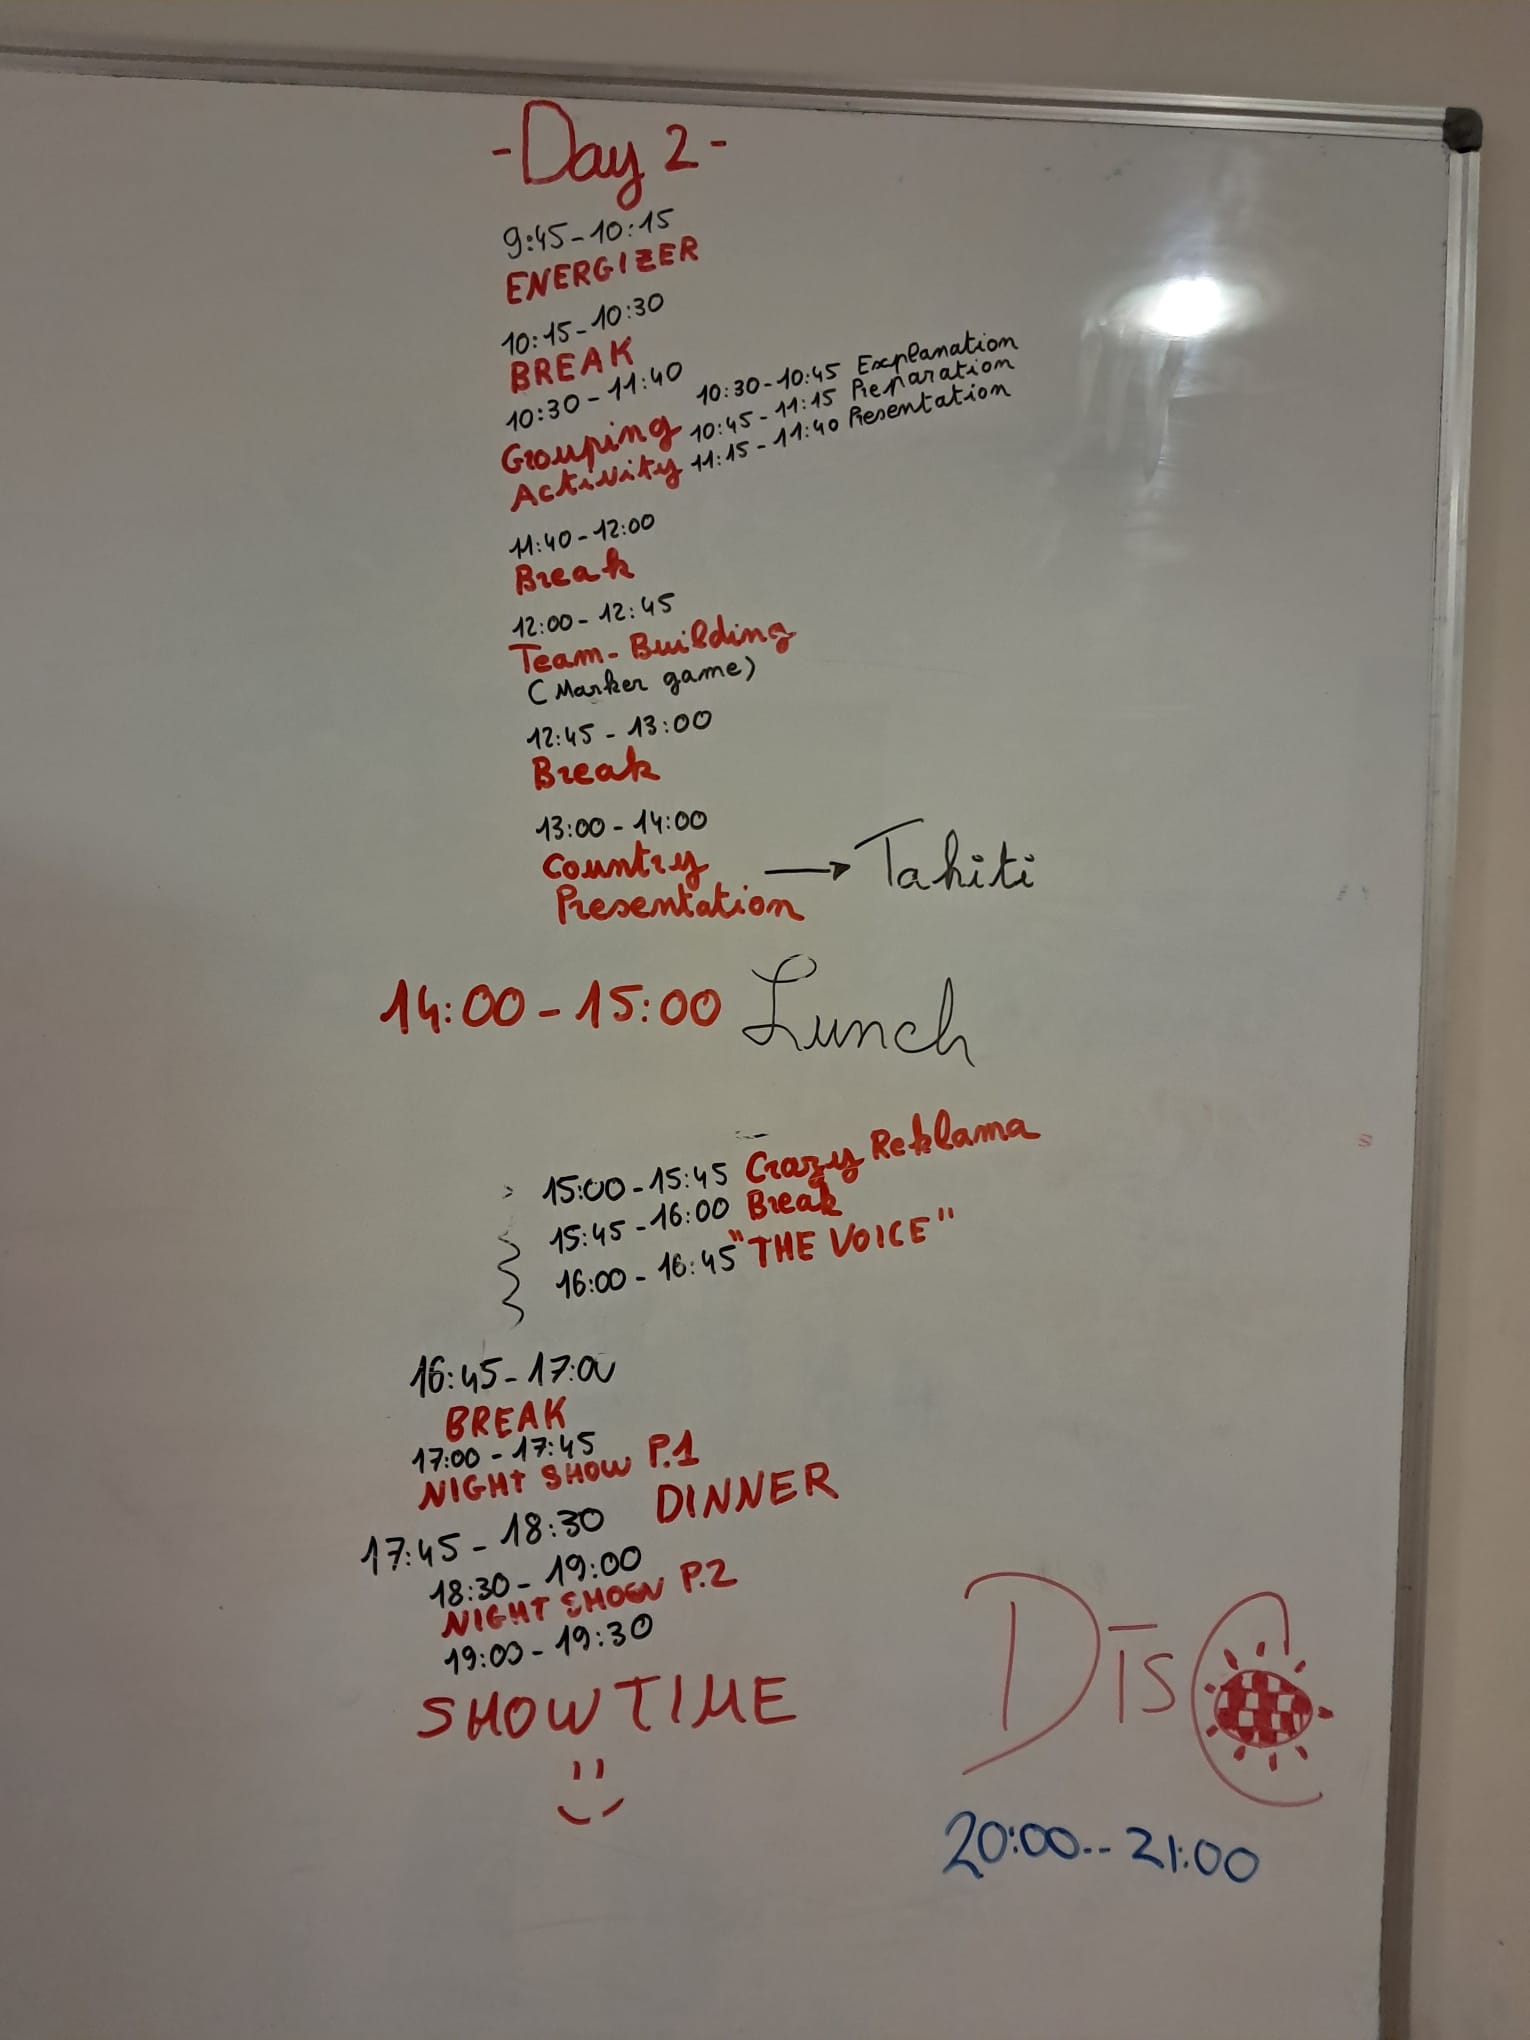 -Day 2-
9:45-10:15
ENERGIZER
10:15-10:30
BREAK
10:30-11:40
Grouping
Activity
10:30-10:45 Explanation
10:45-11:15 Preparation
11:15-11:40 Presentation
11:40-12:00
Break
12:00-12:45
Team-Building
(Marker game)
12:45-13:00
Break
13:00-14:00
Country
Presentation → Tahiti
14:00-15:00 Lunch
15:00-15:45 Crazy Reklama
15:45-16:00 Break
16:00-16:45 "THE VOICE"
16:45-17:00
BREAK
17:00-17:45
NIGHT SHOW P.1
17:45-18:30 DINNER
18:30-19:00
NIGHT SHOW P.2
19:00-19:30
SHOWTIME
DISC
20:00--21:00
S